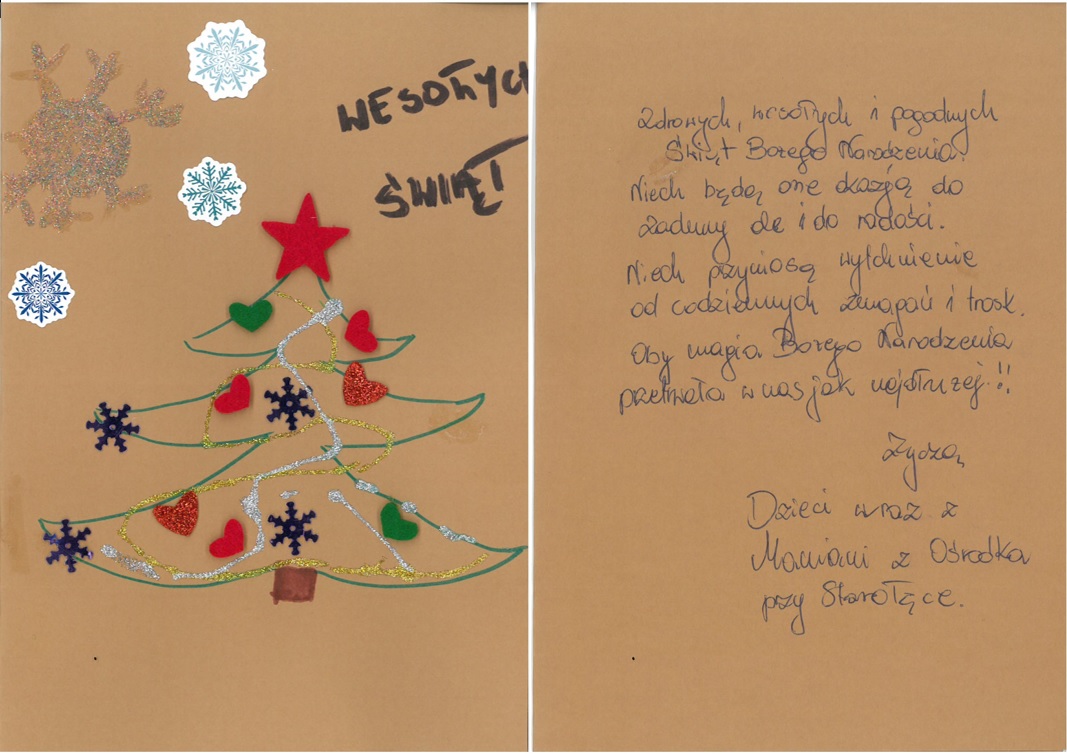 WESOŁYCH
ŚWIĄT
Zdrowych, wesołych i pogodnych
Świąt Bożego Narodzenia.
Niech będą one okazją do
zadumy ale i do radości.
Niech przyniosą wytchnienie
od codziennych zmagań i trosk.
Oby magia Bożego Narodzenia
przetrwała w nas jak najdłużej!!
Życzą
Dzieci wraz z
Mamami z Ośrodka
przy Starołęce.